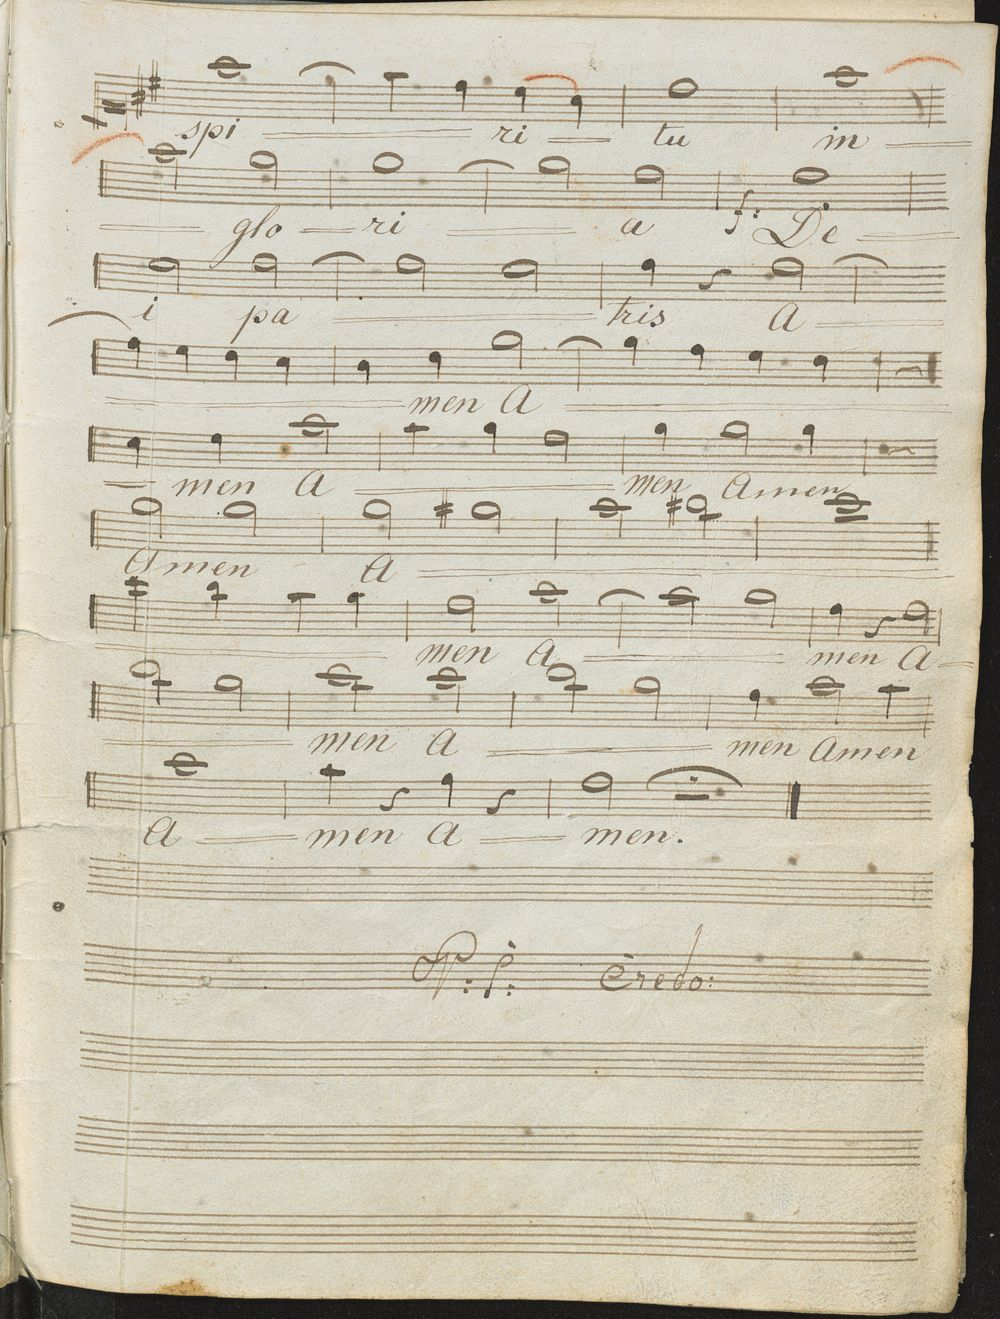 spi ri tu in
glo ri a f: De
i pa tris A
men A
men A men Amen
Amen A
men A men A
men A men Amen
A men A men.
Credo: